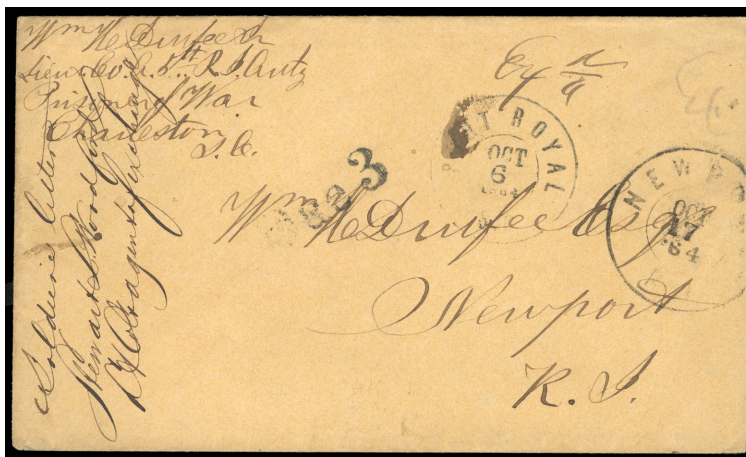 Wm H Durfee Jr
Lieut Co. A. 5th R I Arty
Prisoner of War
Charleston
S. C.
Soldiers letter
Stewart L. Woodford
Lt Col & agent for exchange
Ex
PORT ROYAL
OCT
6
1864
Due 3
NEWPO
OCT
17
'64
Wm H Durfee Esq
Newport
R. I.